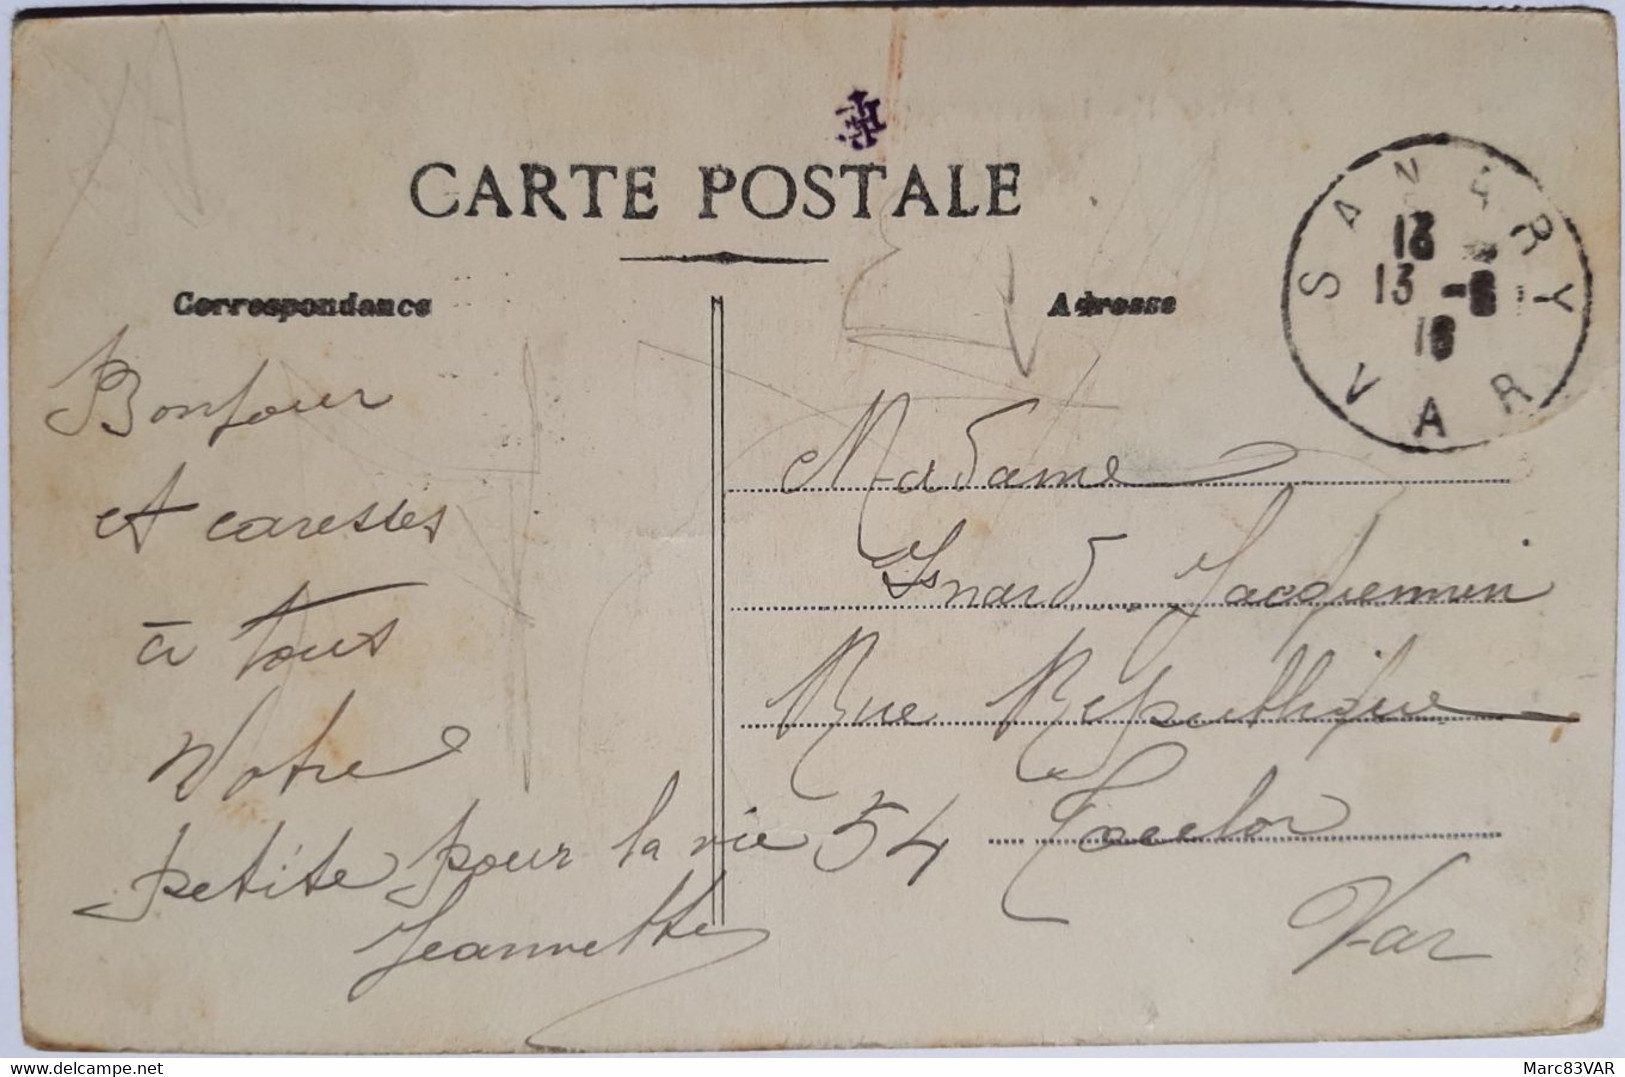 CARTE POSTALE
Correspondance
Adresse
SANARY
13
13 -8
16
VAR
Bonjour
et caresses
à tous
Votre
petite pour la vie
Jeannette
Madame
Isnard Jacquemin
Rue République
54 Toulon
Var
delcampe.net
Marc83VAR